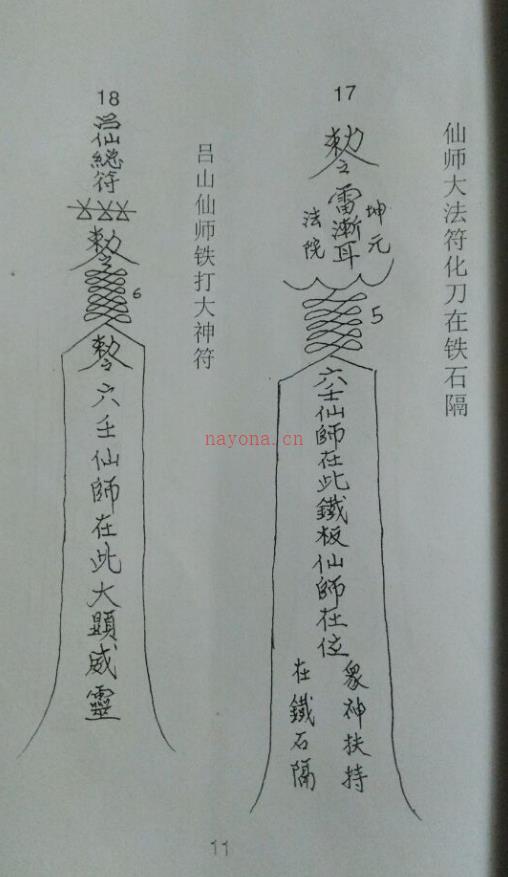 仙师大法符化刀在铁石隔
17
敕令
雷漸耳
坤元
法院
5
六壬仙師在此鐵板仙師在位
眾神扶持
在鐵石隔
吕山仙师铁打大神符
18
仙總符
敕令
6
敕令
六壬仙師在此大顯威靈
nayona.cn
11